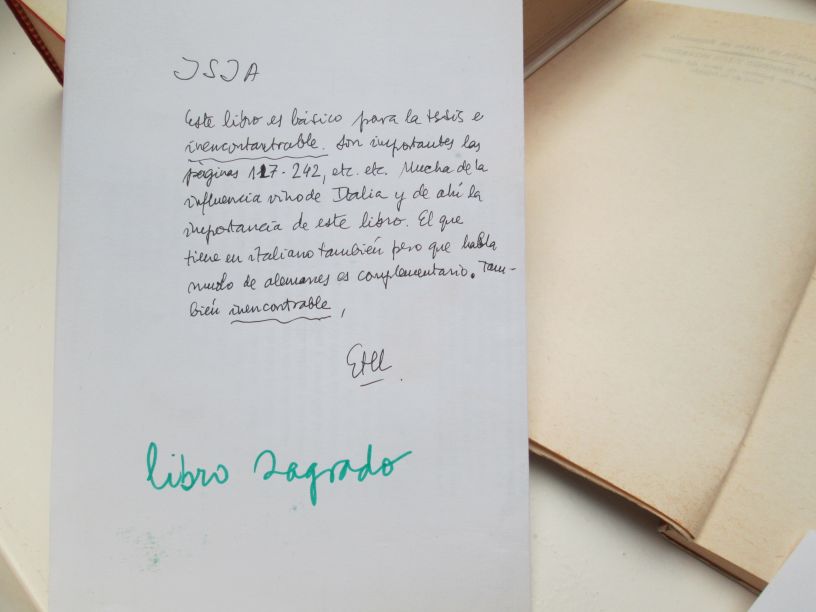 ISIA
Este libro es básico para la tesis e
inencontantrable. Son importantes las
páginas 117-242, etc. etc. Mucha de la
influencia vino de Italia y de ahí la
importancia de este libro. El que
tiene en italiano también pero que habla
mucho de alemanes es complementario. Tam-
bién inencontrable,
libro sagrado